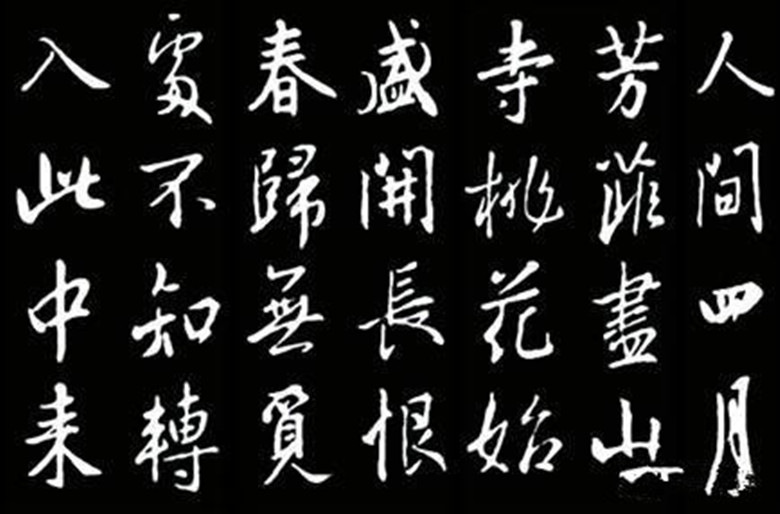 人間四月
芳菲盡山
寺桃花始
盛開長恨
春歸無覓
處不知轉
入此中来